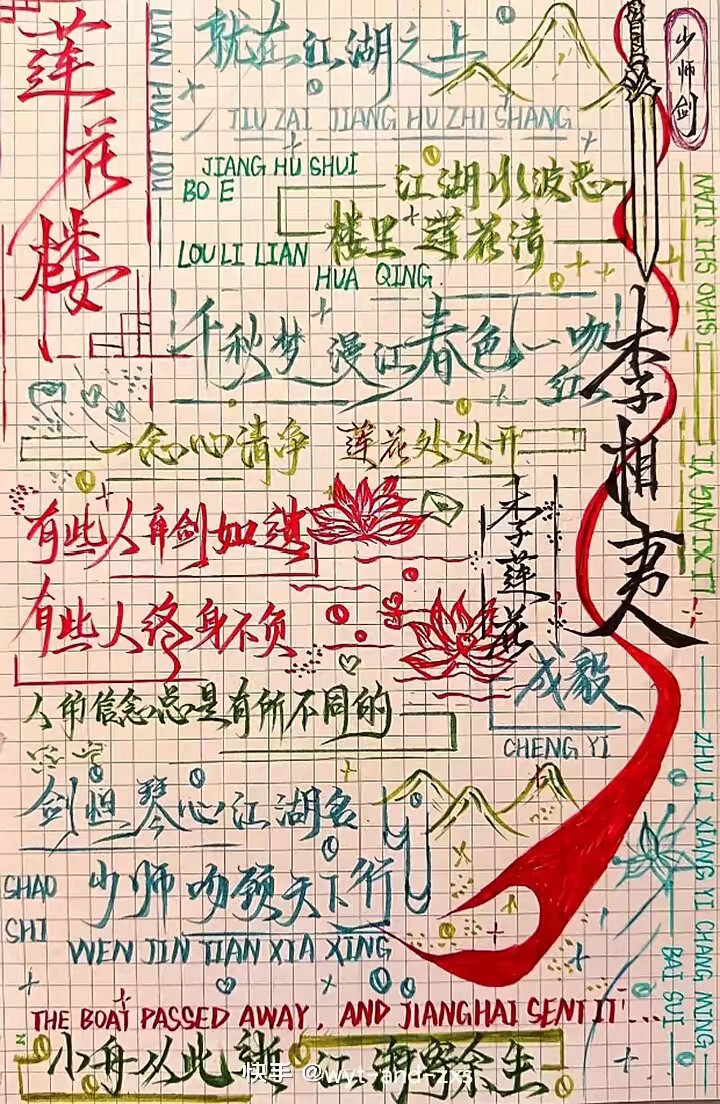 莲花楼
LIAN HUA LOU
就在江湖之上
JIU ZAI JIANG HU ZHI SHANG
少师剑
JIANG HU SHUI
BO E
江湖水波恶
楼里莲花清
LOU LI LIAN
HUA QING
LI JI SHAO SHI JIAN
千秋梦 漫江春色一吻
红
李相夷
LI XIANG YI
一念心清净 莲花处处开
有些人弃剑如遗
李莲花
有些人终身不负
成毅
CHENG YI
人的信念总是有所不同的
剑胆琴心江湖名
少师吻颈天下行
SHAO
SHI
WEN JIN TIAN XIA XING
ZHU LI XIANG YI CHANG MING
BAI SUI
THE BOAT PASSED AWAY, AND JIANGHAI SENT IT...
小舟从此逝 江海寄余生
快手 @wyt-and-zxs